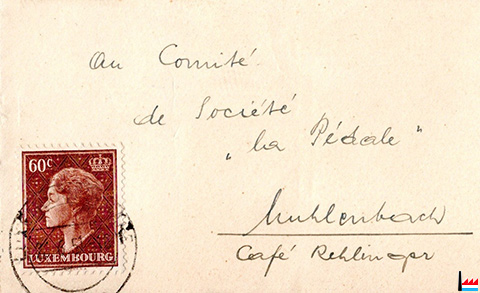 Au Comité
de Société
"La Pédale"
Muhlenbach
Café Rehlinger
60c
LUXEMBOURG